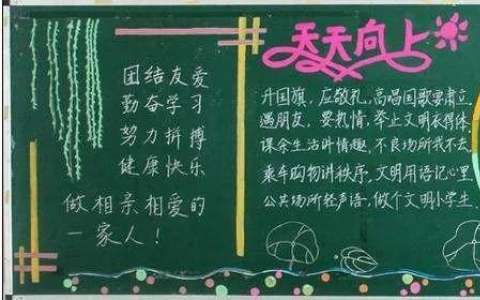 团结友爱
勤奋学习
努力拼搏
健康快乐
做相亲相爱的
一家人！
天天向上
升国旗，应敬礼，高唱国歌要肃立
遇朋友，要热情，举止文明衣得体
课余生活讲情趣，不良场所我不去
乘车购物讲秩序，文明用语记心里
公共场所轻声语，做个文明小学生